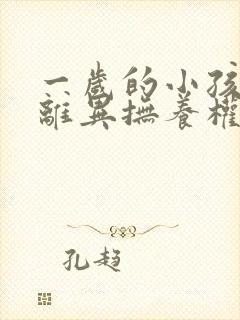 一歲的小孩
離異撫養權
孔趨